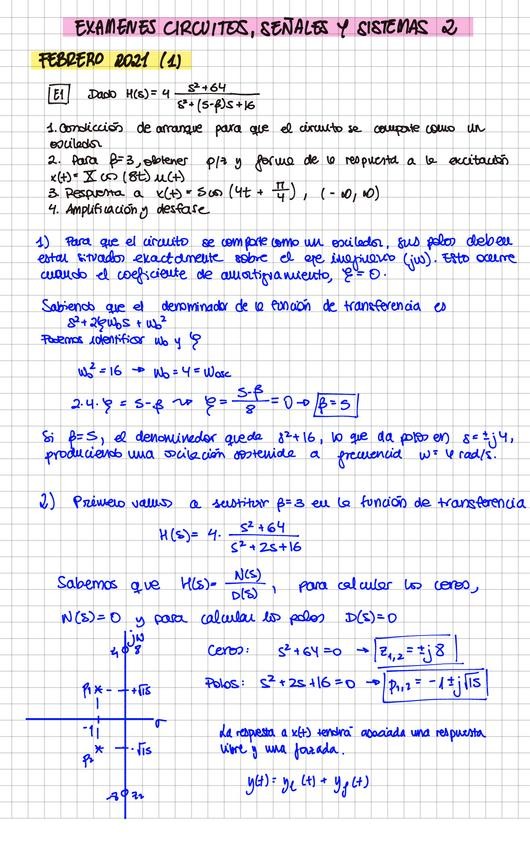 EXAMENES CIRCUITOS, SEÑALES Y SISTEMAS 2
FEBRERO 2021 (1)
E1 Dado H(s) = 4 (s²+64)/(s²+(5-β)s+16)
1. Condicción de arranque para que el circuito se comporte como un
oscilador
2. Para β=3, obtener p/z y forma de la respuesta a la excitación
x(t) = X cos (8t) u(t)
3. Respuesta a x(t) = 5 cos (4t + π/4), (-∞, ∞)
4. Amplificación y desfase
1) Para que el circuito se comporte como un oscilador, sus polos deben
estar situados exactamente sobre el eje imaginario (jω). Esto ocurre
cuando el coeficiente de amortiguamiento, ξ = 0.
Sabiendo que el denominador de la función de transferencia es
s² + 2ξω₀s + ω₀²
Podemos identificar ω₀ y ξ
ω₀² = 16 → ω₀ = 4 = ωosc
2·4·ξ = 5-β ⇝ ξ = (5-β)/8 = 0 → β = 5
Si β=5, el denominador queda s²+16, lo que da polos en s=±j4,
produciendo una oscilación sostenida a frecuencia ω = 4 rad/s.
2) Primero vamos a sustituir β=3 en la función de transferencia
H(s) = 4 · (s²+64)/(s²+2s+16)
Sabemos que H(s) = N(s)/D(s), para calcular los ceros,
N(s)=0 y para calcular los polos D(s)=0
jω
8
Ceros: s²+64=0 → z₁,₂ = ±j8
p₁ +√15
Polos: s²+2s+16=0 → p₁,₂ = -1 ± j√15
σ
-1
p₂ -√15
La respuesta a x(t) tendrá asociada una respuesta
libre y una forzada.
-8 z₂
y(t) = yₗ(t) + y_f(t)